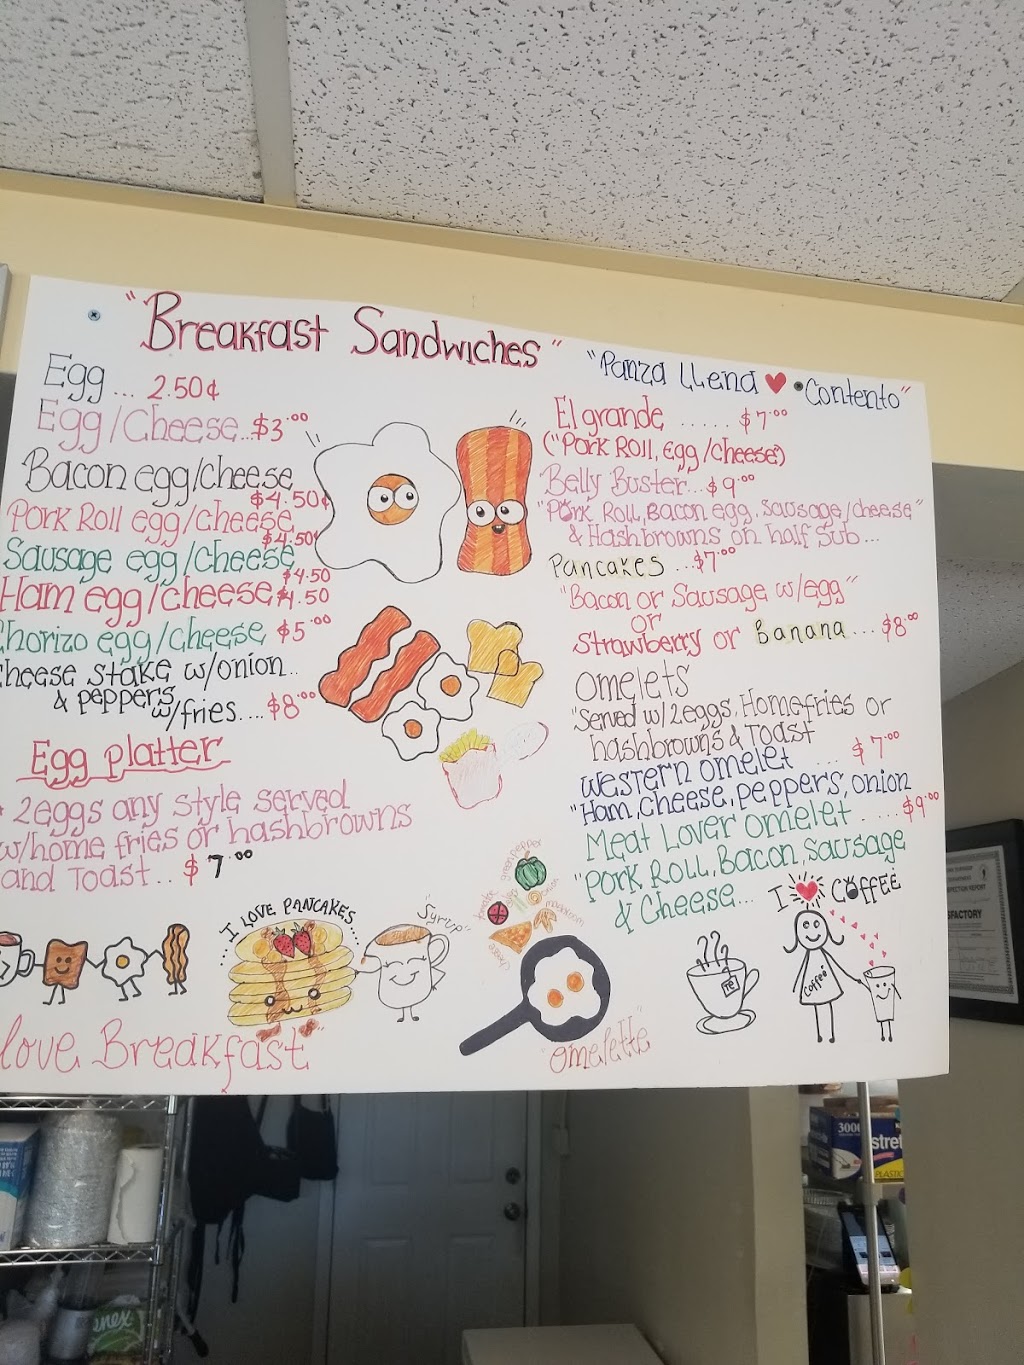 "Breakfast Sandwiches"
Egg... 2.50¢
Egg/Cheese...$3.00
Bacon egg/cheese
$4.50¢
Pork Roll egg/cheese
$4.50¢
Sausage egg/cheese
$4.50
Ham egg/cheese $4.50
Chorizo egg/cheese $5.00
Cheese stake w/onion..
& peppers
w/fries.... $8.00
Egg platter
2eggs any style served
w/home fries or hashbrowns
and Toast... $7.00
"Panza LLena ❤ Contento"
El grande ...... $7.00
("Pork Roll, Egg/cheese")
Belly Buster... $9.00
"Pork Roll, Bacon egg, sausage/cheese"
& Hashbrowns on half Sub...
Pancakes ...$7.00
"Bacon or Sausage w/egg"
or
Strawberry or Banana.... $8.00
Omelets
"Served w/2eggs, Homefries or
hashbrowns & Toast
Western omelet .... $7.00
"Ham, cheese, peppers, onion
Meat Lover omelet .... $9.00
"Pork Roll, Bacon, sausage
& Cheese...
I LOVE PANCAKES
Syrup"
green pepper
onion
mushroom
tomatoe
cheese
I ❤ COFFEE
coffee
love Breakfast
"omelette"
SPECTION REPORT
SFACTORY
3000
stret
PLASTIC
enex